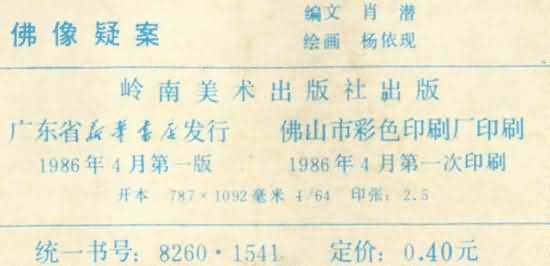 佛像疑案
编文 肖潜
绘画 杨依现
岭南美术出版社出版
广东省新华书店发行 佛山市彩色印刷厂印刷
1986年4月第一版 1986年4月第一次印刷
开本 787×1092毫米 1/64 印张：2.5
统一书号：8260·1541 定价：0.40元